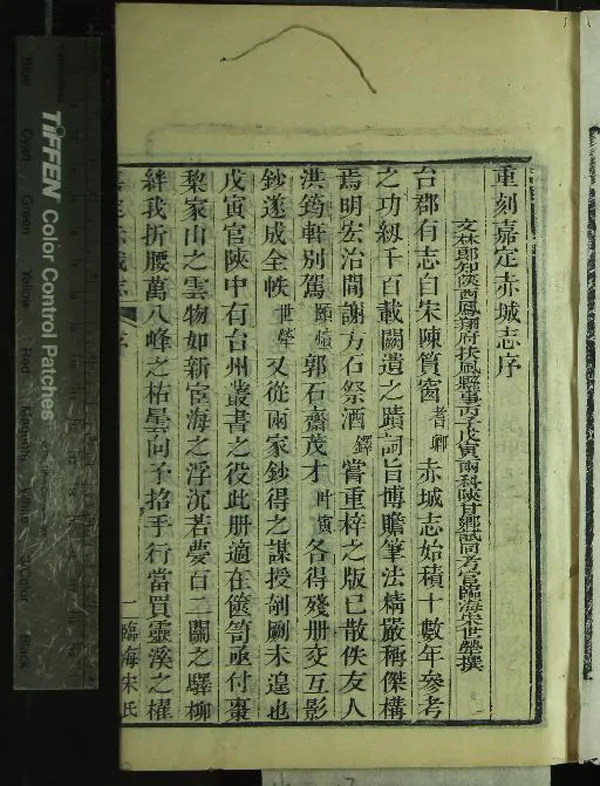 重刻嘉定赤城志序
文林郎知陝西鳳翔府扶風縣事丙子戊寅兩科陝甘鄉試同考官臨海宋世犖撰
台郡有志自宋陳篔窗耆卿赤城志始積十數年參考
之功綴千百載闕遺之蹟詞旨博贍筆法精嚴稱傑構
焉明宏治閒謝方石祭酒鐸嘗重梓之版已散佚友人
洪筠軒別駕頤煊郭石齋茂才叶寅各得殘册交互影
鈔遂成全帙世犖又從兩家鈔得之謀授剞劂未遑也
戊寅官陝中有台州叢書之役此册適在篋笥亟付棗
棃家山之雲物如新宦海之浮沉若夢百二關之驛柳
絆我折腰萬八峰之祐曇向予招手行當買靈溪之櫂
嘉定赤城志 序 一 臨海宋氏
TIFFEN Color Control Patches
Blue Cyan Green Yellow Red Magenta White 3/Color Black